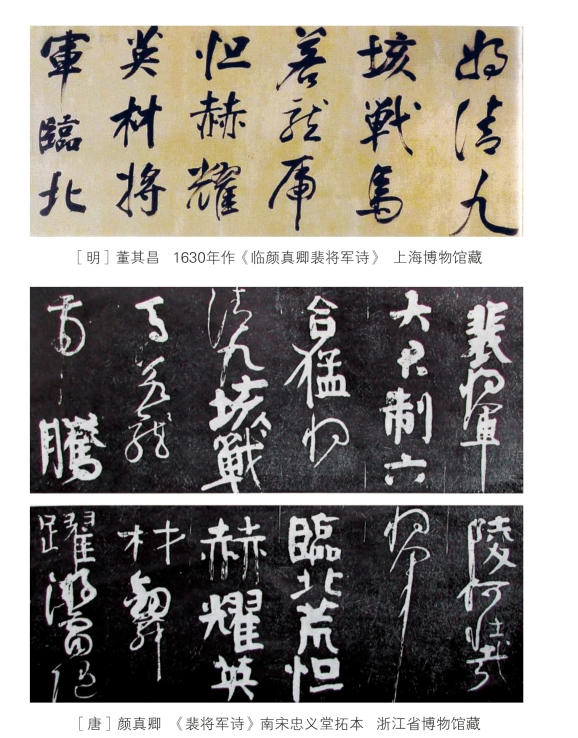 將清九
垓戰馬
若龍虎
怛赫耀
英材將
軍臨北
［明］董其昌　1630年作《临颜真卿裴将军诗》　上海博物馆藏
裴將軍
大君制六
合猛將
清九垓戰
馬若龍
虎騰
陵何壯哉
將軍
臨北荒怛
赫耀英
材劍舞
躍游電隨
［唐］颜真卿　《裴将军诗》南宋忠义堂拓本　浙江省博物馆藏